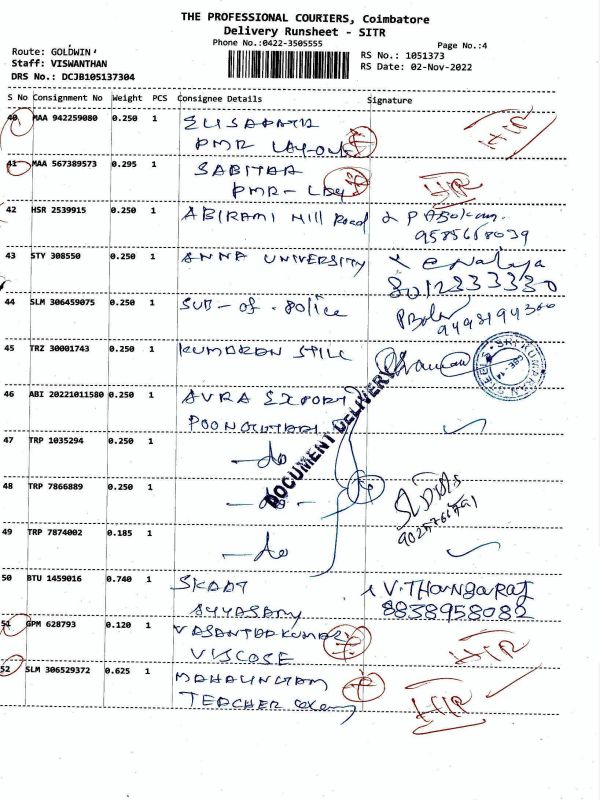 THE PROFESSIONAL COURIERS, Coimbatore
Delivery Runsheet - SITR
Phone No.:0422-3505555
Page No.:4
Route: GOLDWIN
Staff: VISWANTHAN
DRS No.: DCJB105137304
RS No.: 1051373
RS Date: 02-Nov-2022
S No Consignment No Weight PCS Consignee Details Signature
40 MAA 942259080 0.250 1 ELISAPATH
PMR LAYOUT
41 MAA 567389573 0.295 1 SABITHA
PMR - Lay
42 HSR 2539915 0.250 1 ABIRAMI Mill Road
9585658039
43 STY 308550 0.250 1 ANNA UNIVERSITY
8012333330
44 SLM 306459075 0.250 1 SUB - of - Police
9498194300
45 TRZ 30001743 0.250 1 KUMARAN
46 ABI 20221011580 0.250 1 AVRA EXPORT
DOCUMENT DELIVERY
47 TRP 1035294 0.250 1 - do
48 TRP 7866889 0.250 1 - do -
49 TRP 7874002 0.185 1 - do
50 BTU 1459016 0.740 1 V. THANGARAJ
8838958082
51 GPM 628793 0.120 1 VASANTHAKUMAR
VISCOSE
52 SLM 306529372 0.625 1 MAHALINGAM
TEACHER